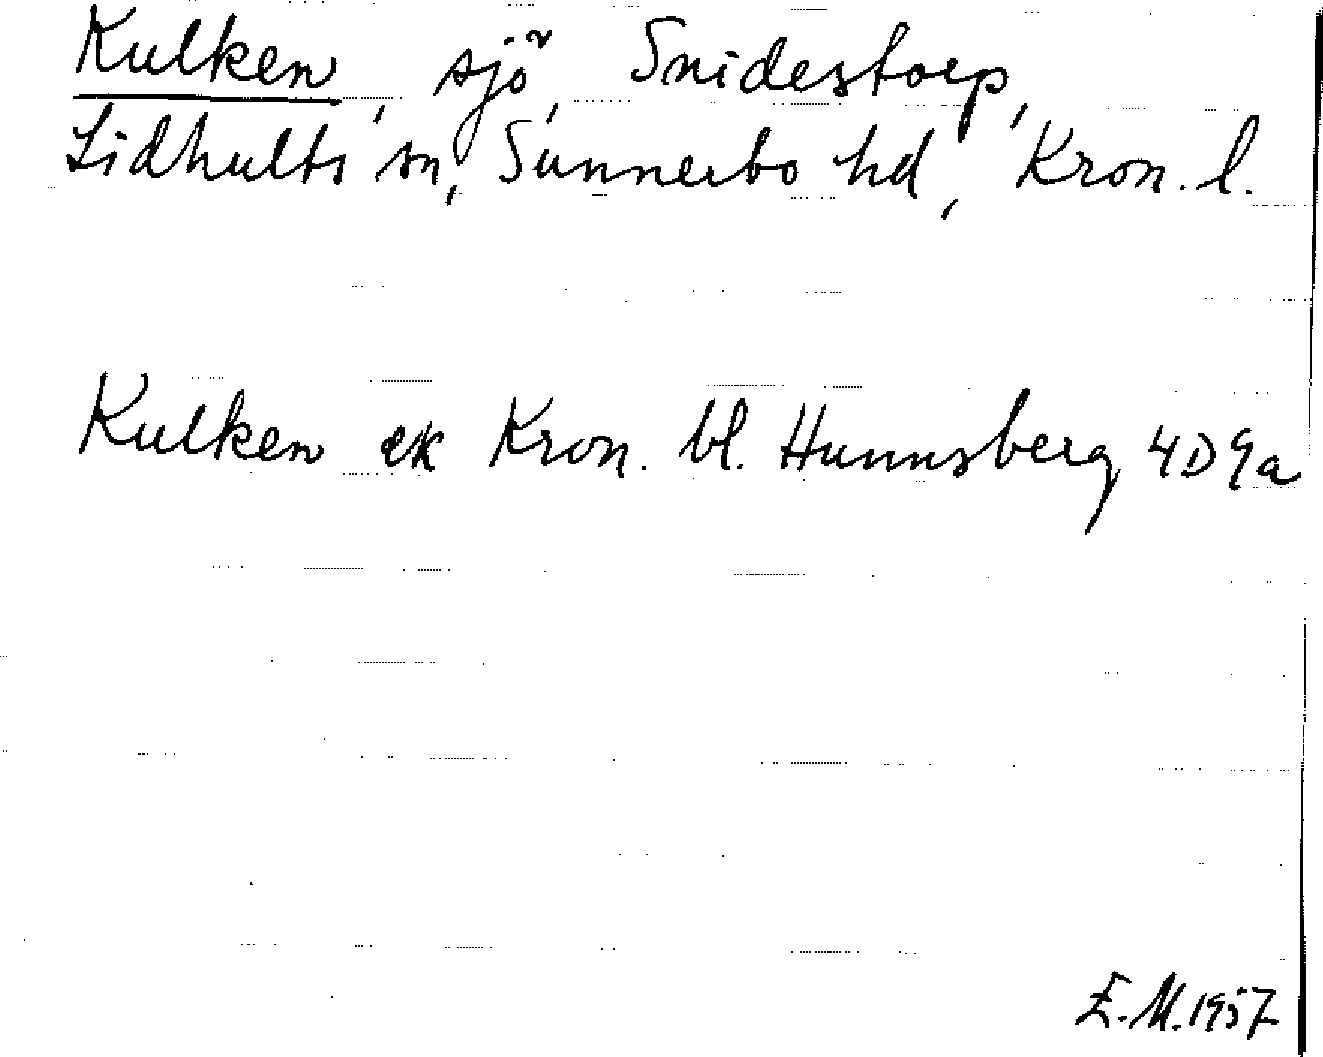 Kulken, sjö, Snidestorp,
Lidhults sn, Sunnerbo hd, Kron. l.
Kulken ek Kron. bl. Hunnsberg 4D9a
E.M. 1957